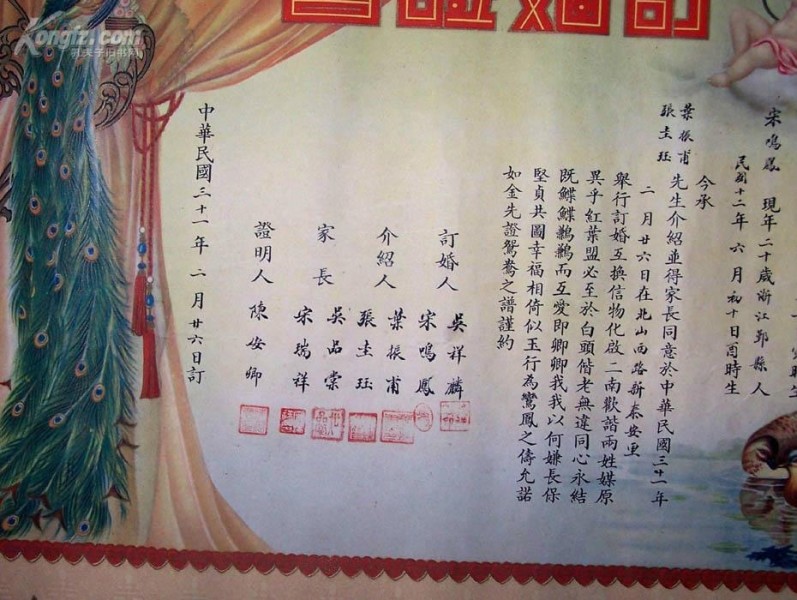 訂婚證書
宋鳴鳳 現年二十歲浙江鄞縣人
民國十二年六月初十日酉時生
今承
葉振甫
張圭珏
先生介紹並得家長同意於中華民國三十一年
二月廿六日在北山西路新泰安里
舉行訂婚互換信物化啟二南歡諧兩姓媒原
異乎紅葉盟必至於白頭偕老無違同心永結
既鰈鰈鶼鶼而互愛即卿卿我我以何嫌長保
堅貞共圖幸福相倚似玉行為鸞鳳之儔允諾
如金先證鴛鴦之譜謹約
訂婚人 吳祥麟
宋鳴鳳
介紹人 葉振甫
張圭珏
家長 吳品棠
宋瑞祥
證明人 陳安卿
中華民國三十一年二月廿六日訂
Kongfz.com
孔夫子旧书网